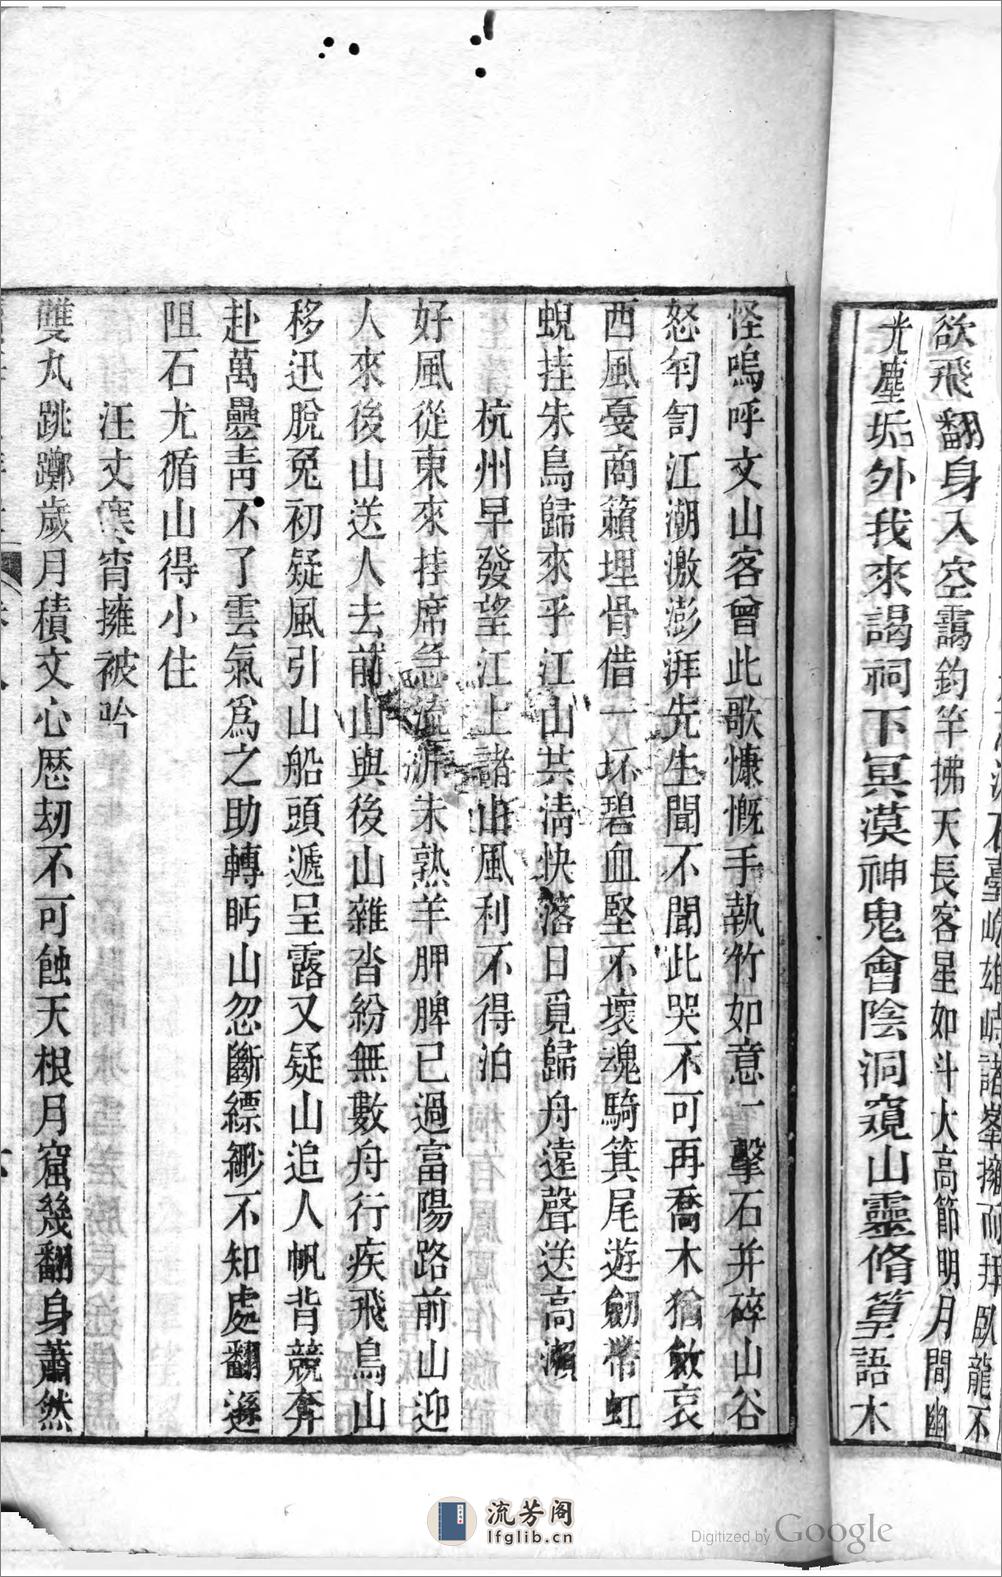 石臺屹雄峙諸峯擁而拜臥龍不
欲飛翻身入空靄釣竿拂天長客星如斗大高節明月間幽
光塵垢外我來謁祠下冥漠神鬼會陰洞窺山靈脩篁語木
怪嗚呼文山客曾此歌慷慨手執竹如意一擊石并碎山谷
怒匉訇江潮激澎湃先生聞不聞此哭不可再喬木猶斂哀
西風戞商籟埋骨借一坏碧血堅不壞魂騎箕尾遊劒帶虹
蜺挂朱鳥歸來乎江山共淸快落日覓歸舟遠聲送高瀨
杭州早發望江上諸山風利不得泊
好風從東來挂席急流泝未熟羊胛脾已過富陽路前山迎
人來後山送人去前山與後山雜沓紛無數舟行疾飛鳥山
移迅脫兔初疑風引山船頭遞呈露又疑山追人帆背競奔
赴萬疊靑不了雲氣爲之助轉眄山忽斷縹緲不知處翻遜
阻石尤循山得小住
汪丈寒宵擁被吟
雙丸跳躑歲月積文心歷劫不可蝕天根月窟幾翻身蕭然
流芳阁
lfglib.cn
Digitized by Google